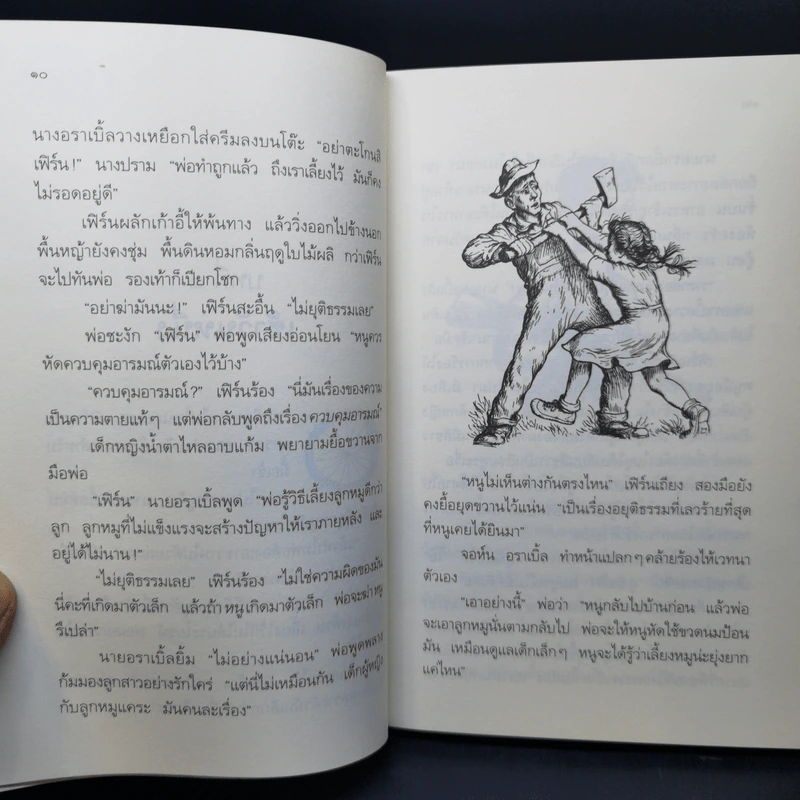 ๑๐
นางอราเบิ้ลวางเหยือกใส่ครีมลงบนโต๊ะ “อย่าตะโกนสิ
เฟิร์น!” นางปราม “พ่อทำถูกแล้ว ถึงเราเลี้ยงไว้ มันก็คง
ไม่รอดอยู่ดี”
เฟิร์นผลักเก้าอี้ให้พ้นทาง แล้ววิ่งออกไปข้างนอก
พื้นหญ้ายังคงชุ่ม พื้นดินหอมกลิ่นฤดูใบไม้ผลิ กว่าเฟิร์น
จะไปทันพ่อ รองเท้าก็เปียกโชก
“อย่าฆ่ามันนะ!” เฟิร์นสะอื้น “ไม่ยุติธรรมเลย”
พ่อชะงัก “เฟิร์น” พ่อพูดเสียงอ่อนโยน “หนูควร
หัดควบคุมอารมณ์ตัวเองไว้บ้าง”
“ควบคุมอารมณ์?” เฟิร์นร้อง “นี่มันเรื่องของความ
เป็นความตายแท้ๆ แต่พ่อกลับพูดถึงเรื่อง ควบคุมอารมณ์”
เด็กหญิงน้ำตาไหลอาบแก้ม พยายามยื้อขวานจาก
มือพ่อ
“เฟิร์น” นายอราเบิ้ลพูด “พ่อรู้วิธีเลี้ยงลูกหมูดีกว่า
ลูก ลูกหมูที่ไม่แข็งแรงจะสร้างปัญหาให้เราภายหลัง และ
อยู่ได้ไม่นาน!”
“ไม่ยุติธรรมเลย” เฟิร์นร้อง “ไม่ใช่ความผิดของมัน
นี่คะที่เกิดมาตัวเล็ก แล้วถ้าหนูเกิดมาตัวเล็ก พ่อจะฆ่าหนู
รึเปล่า”
นายอราเบิ้ลยิ้ม “ไม่อย่างแน่นอน” พ่อพูดพลาง
ก้มมองลูกสาวอย่างรักใคร่ “แต่นี่ไม่เหมือนกัน เด็กผู้หญิง
กับลูกหมูแคระ มันคนละเรื่อง”
“หนูไม่เห็นต่างกันตรงไหน” เฟิร์นเถียง สองมือยัง
คงยื้อยุดขวานไว้แน่น “เป็นเรื่องอยุติธรรมที่เลวร้ายที่สุด
ที่หนูเคยได้ยินมา”
จอห์น อราเบิ้ล ทำหน้าแปลกๆ คล้ายร้องไห้เวทนา
ตัวเอง
“เอาอย่างนี้” พ่อว่า “หนูกลับไปบ้านก่อน แล้วพ่อ
จะเอาลูกหมูนั่นตามกลับไป พ่อจะให้หนูหัดใช้ขวดนมป้อน
มัน เหมือนดูแลเด็กเล็กๆ หนูจะได้รู้ว่าเลี้ยงหมูน่ะยุ่งยาก
แค่ไหน”